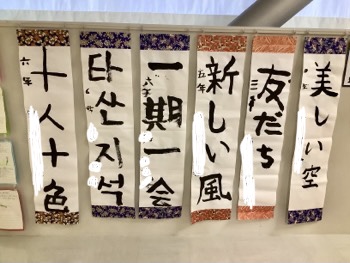 美しい空
友だち
新しい風
五年
一期一会
六年
타산지석
十人十色
六年